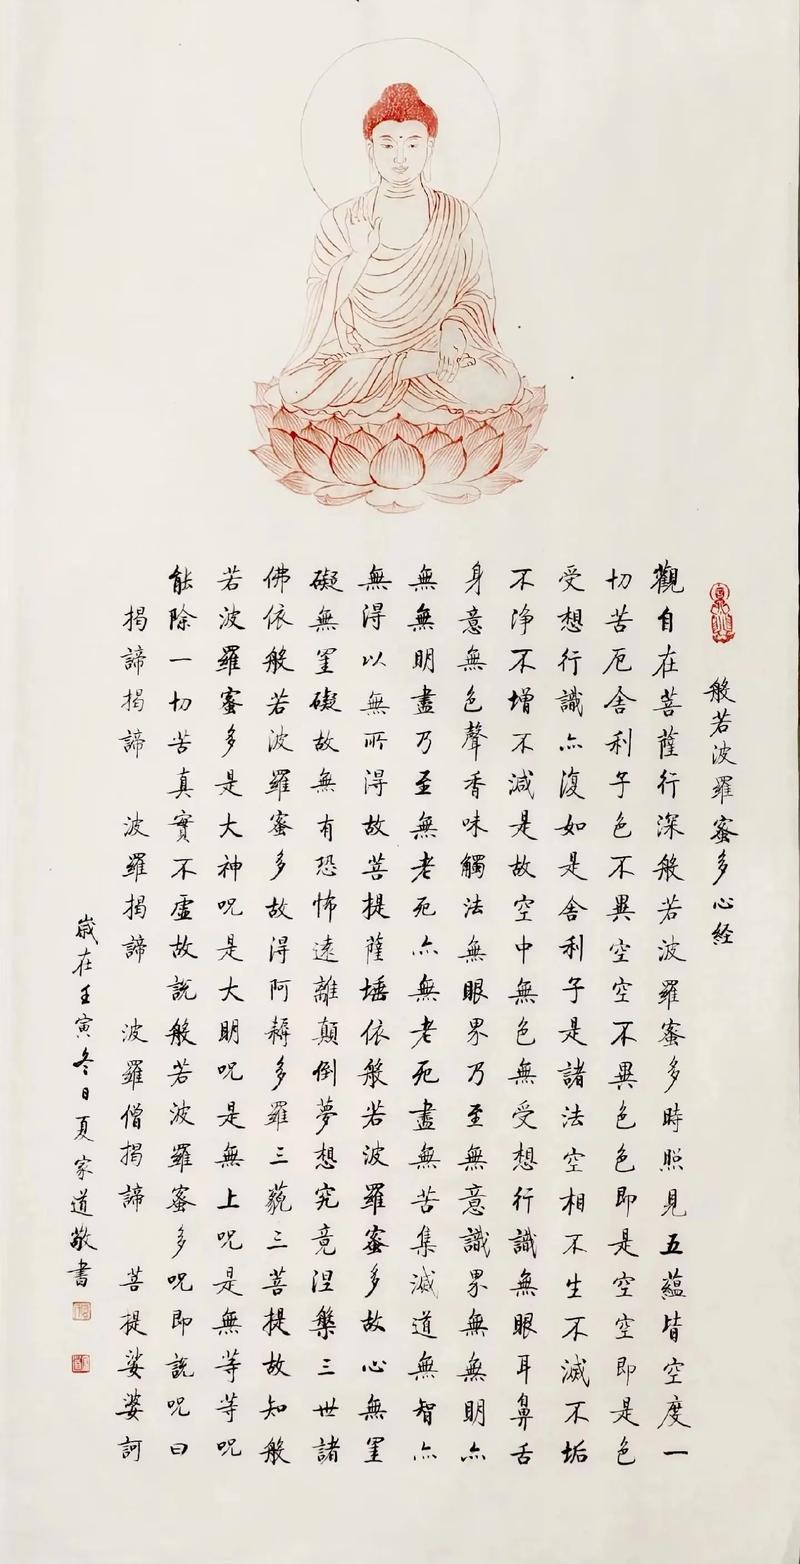 般若波羅蜜多心経
觀自在菩薩行深般若波羅蜜多時照見五蘊皆空度一
切苦厄舍利子色不異空空不異色色即是空空即是色
受想行識亦復如是舍利子是諸法空相不生不滅不垢
不淨不增不減是故空中無色無受想行識無眼耳鼻舌
身意無色聲香味觸法無眼界乃至無意識界無無明亦
無無明盡乃至無老死亦無老死盡無苦集滅道無智亦
無得以無所得故菩提薩埵依般若波羅蜜多故心無罣
礙無罣礙故無有恐怖遠離顛倒夢想究竟涅槃三世諸
佛依般若波羅蜜多故得阿耨多羅三藐三菩提故知般
若波羅蜜多是大神咒是大明咒是無上咒是無等等咒
能除一切苦真實不虛故說般若波羅蜜多咒即說咒曰
揭諦揭諦 波羅揭諦 波羅僧揭諦 菩提娑婆訶
歲在壬寅冬日夏家道敬書